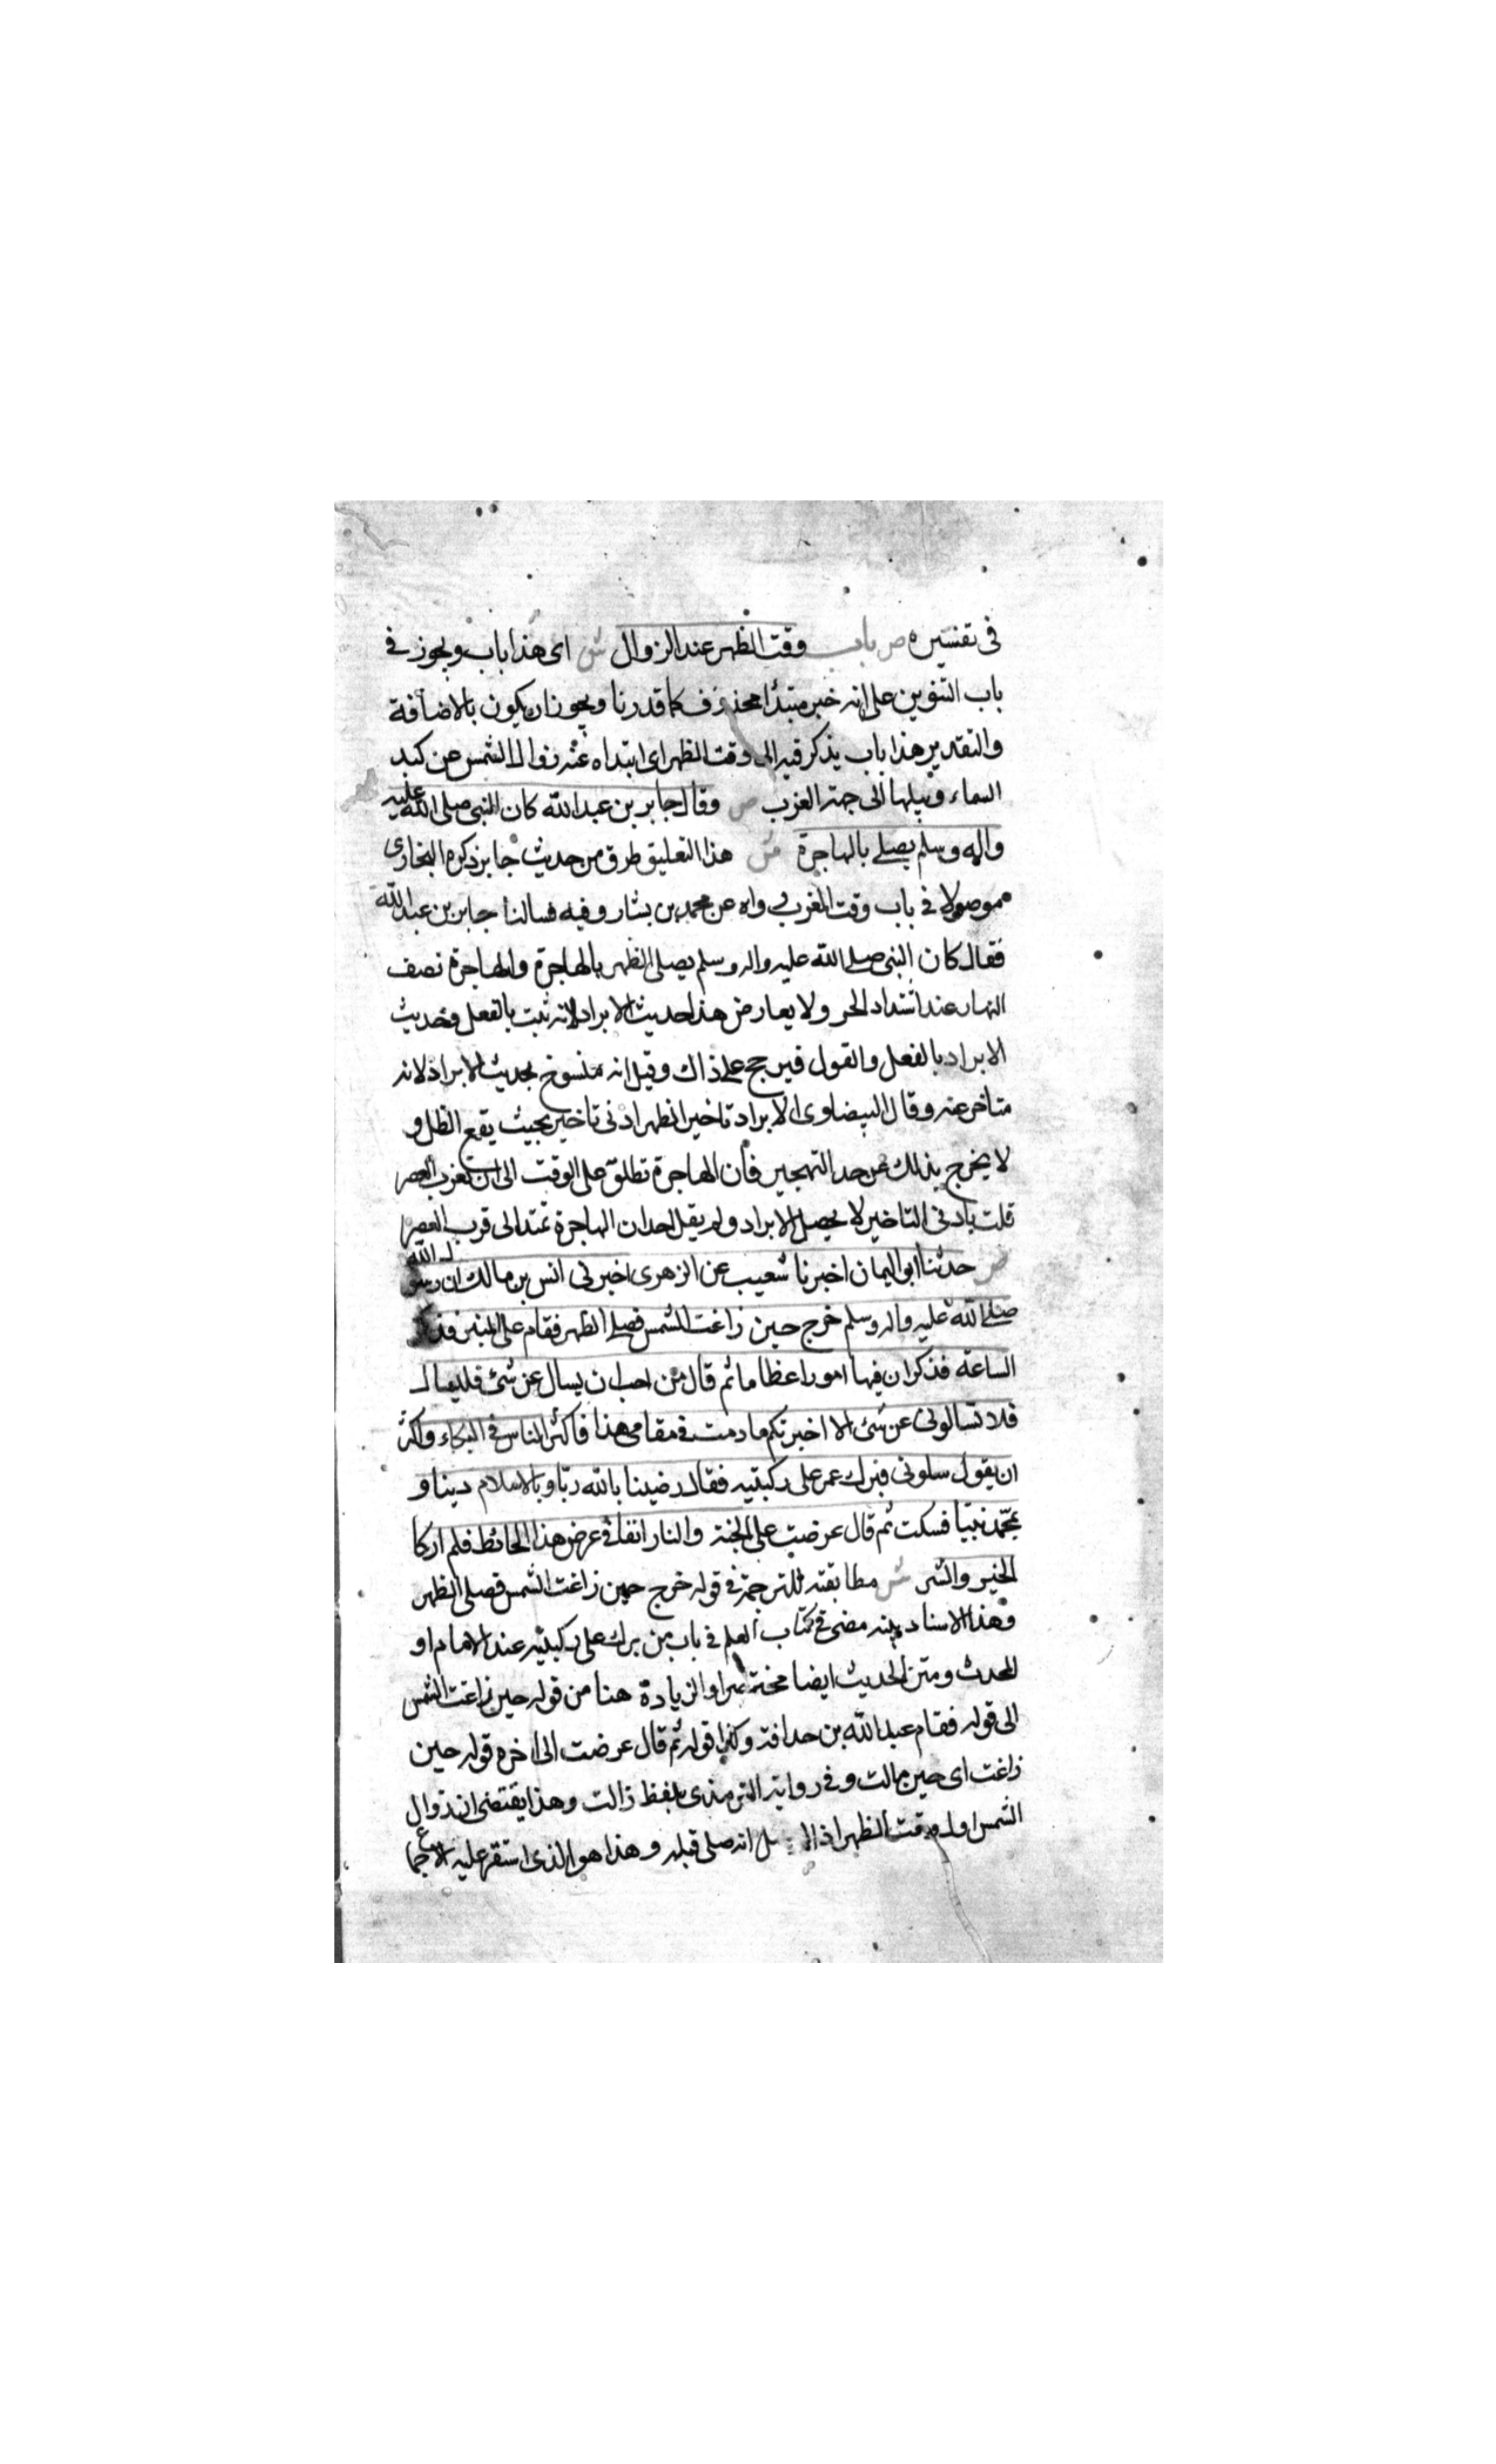 في تفسيره ص باب وقت الظهر عند الزوال ش اى هذا باب ويجوز في
باب التنوين على انه خبر مبتدأ محذوف كما قدرنا ويجوز ان يكون بالاضافة
والتقدير هذا باب يذكر فيه الى وقت الظهر اى ابتداه عند زوال الشمس عن كبد
السماء وميلها الى جهة الغرب ص وقال جابر بن عبد الله كان النبى صلى الله عليه
واله وسلم يصلے بالهاجرة ش هذا التعليق طرق من حديث جابر ذكره البخارى
موصولا في باب وقت المغرب رواه عن محمد بن بشار وفيه فسالنا جابر بن عبد الله
فقال كان النبى صلے الله عليه واله وسلم يصلى الظهر بالهاجرة والهاجرة نصف
النهار عند اشتداد الحر ولا يعارض هذا حديث الابراد لانه ثبت بالفعل وحديث
الابراد بالفعل والقول فيرجح على ذاك وقيل انه منسوخ بحديث الابراد لانه
متاخر عنه وقال البيضاوى الابراد تاخير الظهر ادنى تاخير بحيث يقع الظل و
لا يخرج بذلك عن حد التهجير فان الهاجرة تطلق على الوقت الى ان تغرب العصر
قلت بادنى التاخير لا يحصل الابراد ولم يقل احد ان الهاجرة تمتد الى قرب العصر
ص حدثنا ابو اليمان اخبرنا شعيب عن الزهرى اخبرنى انس بن مالك ان رسول الله
صلے الله عليه واله وسلم خرج حين زاغت الشمس فصلے الظهر فقام على المنبر فذكر
الساعة فذكر ان فيها امورا عظاما ثم قال من احب ان يسال عن شئ فليسال
فلا تسالونى عن شئ الا اخبرتكم مادمت في مقامى هذا فاكثر الناس في البكاء واكثر
ان يقول سلونى فبرك عمر على ركبتيه فقال رضينا بالله ربا وبالاسلام دينا و
بمحمد نبيا فسكت ثم قال عرضت على الجنة والنار انفا في عرض هذا الحائط فلم ار كا
الخير والشر ش مطابقته للترجمة في قوله خرج حين زاغت الشمس فصلى الظهر
وهذا الاسناد بعينه مضى في كتاب العلم في باب من برك على ركبتيه عند الامام او
المحدث ومتن الحديث ايضا مختصرا والزيادة هنا من قوله حين زاغت الشمس
الى قوله فقام عبد الله بن حدافة وكذا قوله ثم قال عرضت الى اخره قوله حين
زاغت اى حين مالت وفي رواية الترمذى بلفظ زالت وهذا يقتضى ان زوال
الشمس اول وقت الظهر اذ لم انه صلى قبله وهذا هو الذى استقر عليه الاجماع